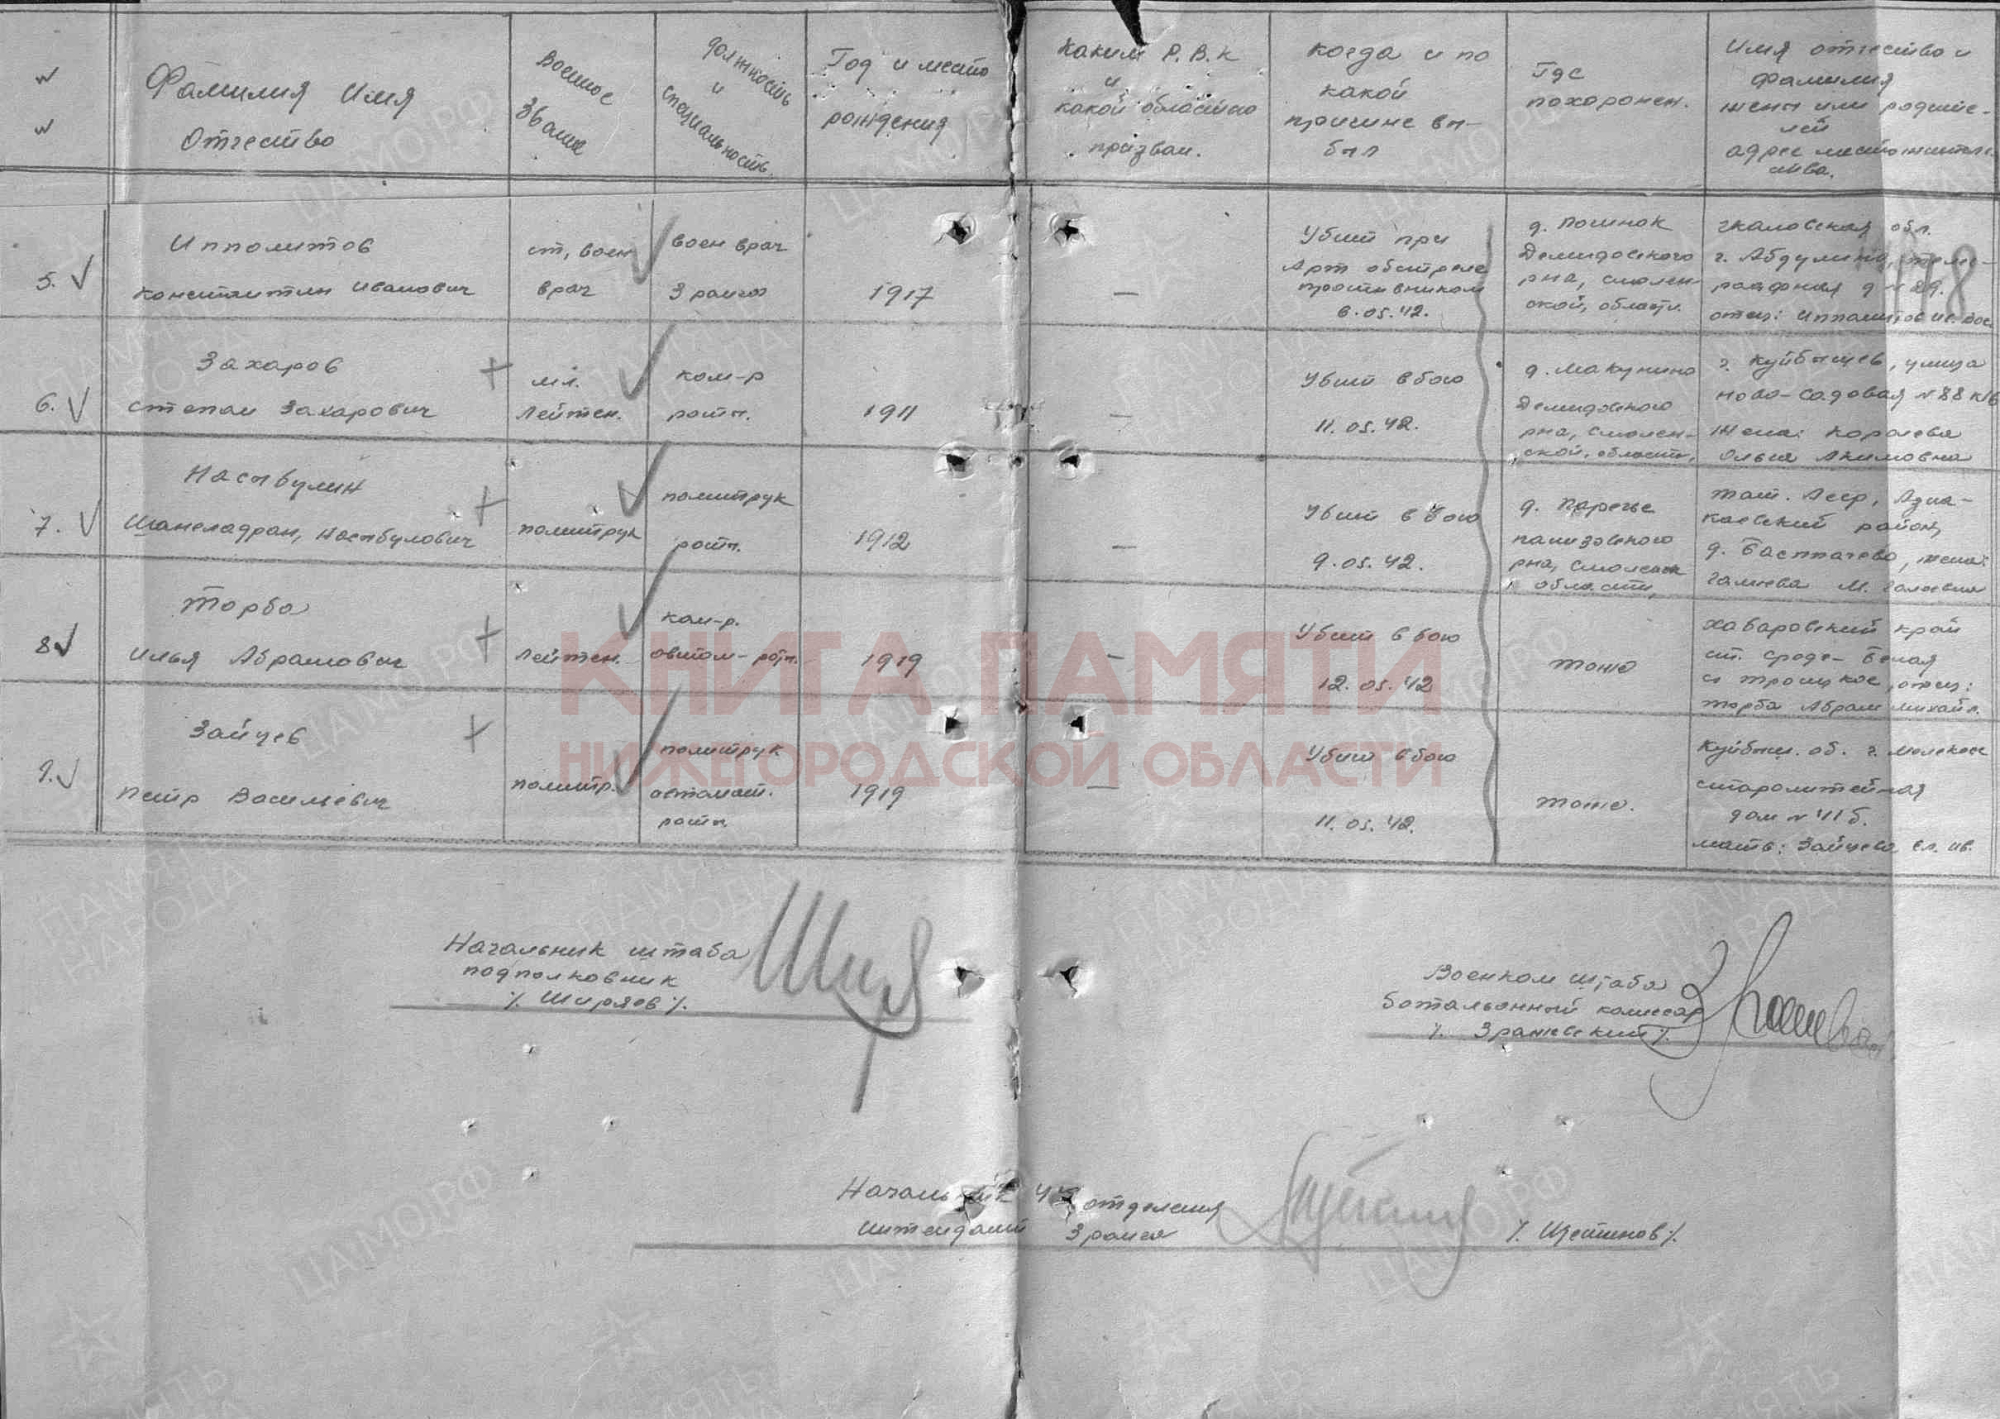 Фамилия Имя
Отчество
Военное
Звание
должность
и
специальность
Год и место
рождения
Каким Р.В.К
и
какой областью
призван.
когда и по
какой
причине вы-
был
Где
похоронен.
Имя отчество и
фамилия
жены или родите-
лей
адрес местожитель
ства.
5.
Ипполитов
Константин Иванович
ст. воен
врач
воен врач
3 ранга
1917
—
Убит при
Арт обстреле
противником
6.05.42.
д. Починок
Демидовского
р-на, смолен-
ской, области.
Чкаловская обл.
г. Абдулино, теле-
графная д № 29.
отец: Ипполитов
6.
Захаров
Степан Захарович
мл.
Лейтен.
ком-р
роты.
1911
—
Убит в бою
11.05.42.
д. Макунино
Демидовского
р-на, смолен-
ской, области,
г. Куйбышев, улица
Ново-Садовая № 88
жена: Королева
Ольга Акимовна
7.
политрук
политрук
роты.
1912
—
Убит в бою
9.05.42.
д. Паречье
р-на, Смоленск
области,
тат. Асср, Азна-
каевский район,
д. жена:
8
Торба
Илья Абрамович
Лейтен.
ком-р.
автом-роты.
1919
—
Убит в бою
12.05.42
тоже
Хабаровский край
ст. Среде-Белая
с Троицкое, отец:
Торба Абрам Михайл.
9.
Зайцев
Петр Васильевич
политр.
политрук
автомат.
роты
1919
—
Убит в бою
11.05.42.
тоже.
Куйбыш. об. г. Мелекесс
старолитейная
дом № 11 б.
мать: Зайцева
Начальник штаба
подполковник
/. Ширяев /.
Военком штаба
батальонный комиссар
Начальник 4 отделения
интендант 3 ранга
/. Щетинов /.
КНИГА ПАМЯТИ
НИЖЕГОРОДСКОЙ ОБЛАСТИ
ПАМЯТЬ
НАРОДА
ЦАМО.РФ